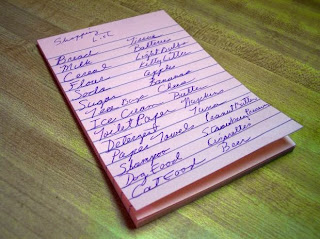 Shopping
List
Bread Tissue
Milk Batteries
Cereal Light Bulbs
Flour Kitty Litter
Soda Apples
Sugar Bananas
Tea
Ice Cream Butter
Toilet Paper Napkins
Detergent Tuna
Paper Towels Peanut Butter
Shampoo Strawberry
Dog Food Cigarettes
Cat Food Beer